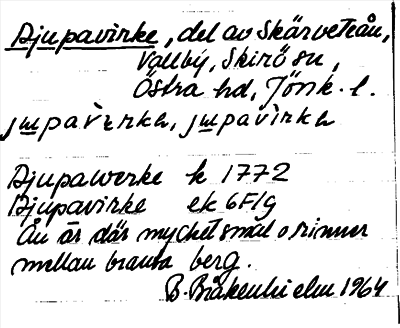 Djupavirke, del av Skärveteån,
Vallby, Skirö sn,
Östra hd, Jönk. l.
jɯpavìrkə, jɯpavìrkə
Djupawerke k 1772
Djupavirke ek 6F/g
Ån är där mycket smal o rinner
mellan branta berg.
B. Bråkenhielm 1964